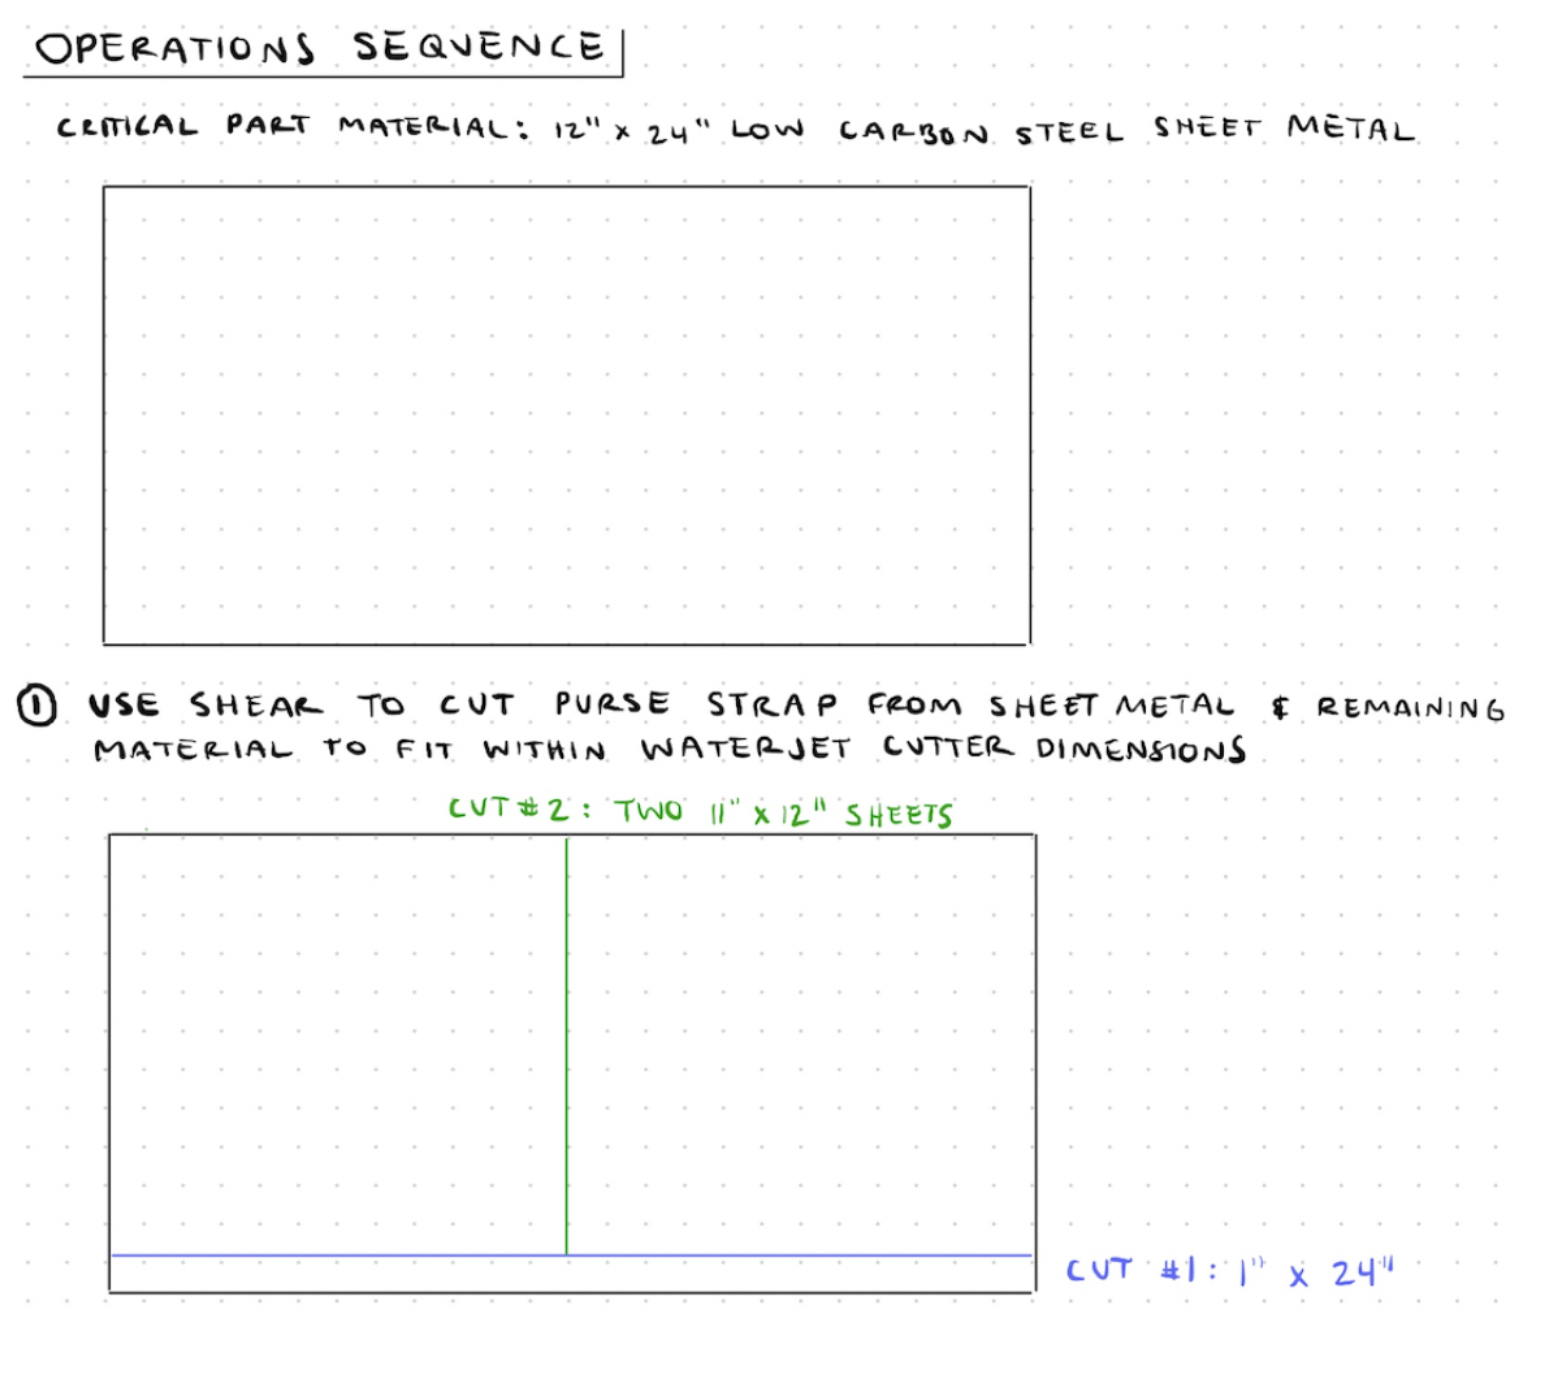 OPERATIONS SEQUENCE
CRITICAL PART MATERIAL: 12" x 24" LOW CARBON STEEL SHEET METAL
① USE SHEAR TO CUT PURSE STRAP FROM SHEET METAL & REMAINING
MATERIAL TO FIT WITHIN WATERJET CUTTER DIMENSIONS
CUT #2: TWO 11" x 12" SHEETS
CUT #1: 1" x 24"